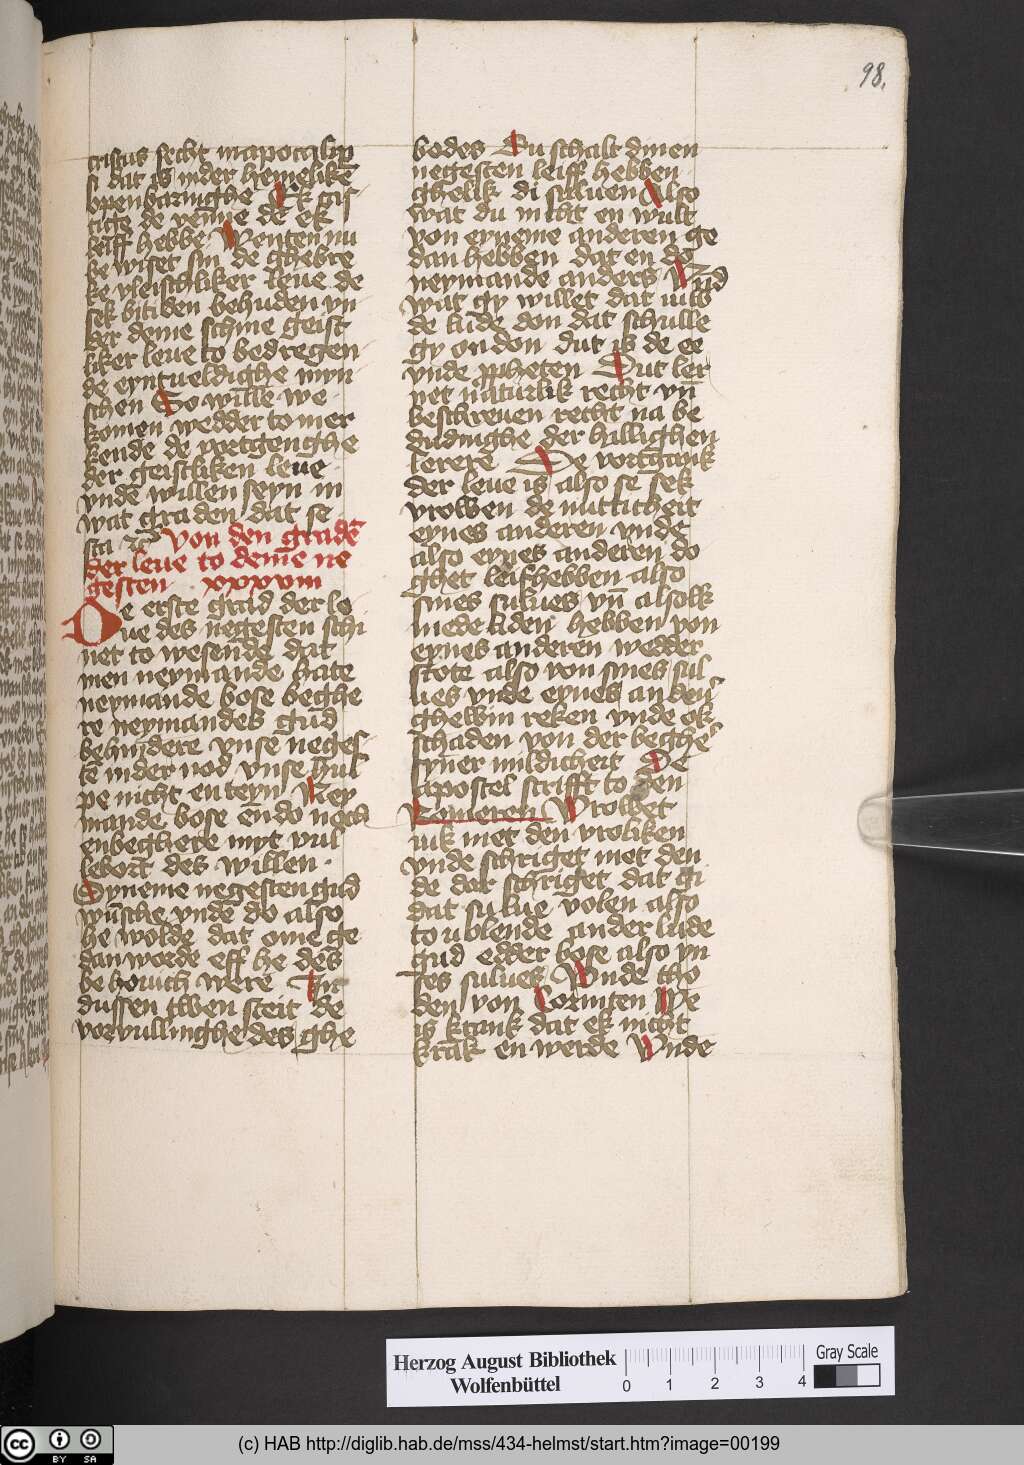 98.
cristus secht in apocalip
si dat is in der hemelikē
openbaringhe Ek cas
tige de yenne de ek
leiff hebbe Wenten nu
be wiset sin de ghebre
ke vleischliker leue de
sek bituiden behuden vn
der deme schine geist
liker leue to bedregen
de eyntueldighe myn
schen So wille we
komen wedder to mer
kende de vortgenghe
der geistliken leue
vnde willen seyn in
wat graden dat se
sta
von den gradē
der leue to deme ne
gesten xxxviii
De erste grad der le
ue des negesten schi
net to wesende dat
men neymande hate
neymande bose beghe
re neymandes gud
behindere vnse neges
tē in der nod vnse hul
pe nicht en teyn Ney
mande bose en do noch
enbeghere myt vul
lebort des willen
Syneme negesten gud
wūsche vnde do also
he wolde dat ome ge
dan worde eff he des
behouich were In
dussen twen steit de
vorvullinghe des ghe
bodes Du schalt dinen
negesten leiff hebben
ghelik di sulluen Also
wat du nicht en wult
von eyneme anderen ge
dan hebben dat en do
neymande anders Vnd
wat gy willet dat iuw
de lude don dat schulle
gy on don dut is de ee
vnde ppheten Dut ler
net naturlik recht vn
beschreuen recht na be
dudinghe der hillighen
lerere De vortgank
der leue is also se sek
vrowen de nutticheit
eynes anderen vnde
also eynes anderen do
ghet leifhebben also
sines sulues vn also ok
mede liden hebben von
eynes anderen wedder
stote also von sines sul
ues vnde eynes anderen
ghewin reken vnde ok
schaden von der beghe
syner mildicheit De
apostel scrifft to den
Romeren Vrowet
iuk met den vroliken
vnde schriget met den
de dar schriget dat gi
dat sulue volen also
to vblende ander lude
gud edder bose also yn
ses sulues Vnde tho
den von Corinten We
is krank dat ek nicht
krāk en werde Vnde
Herzog August Bibliothek
Wolfenbüttel
0 1 2 3 4
Gray Scale
(c) HAB http://diglib.hab.de/mss/434-helmst/start.htm?image=00199